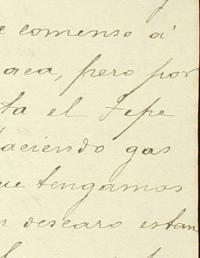 e comenso á
aca, pero por
ta el Jepe
haciendo gas
ue tengamos
n descaro estan